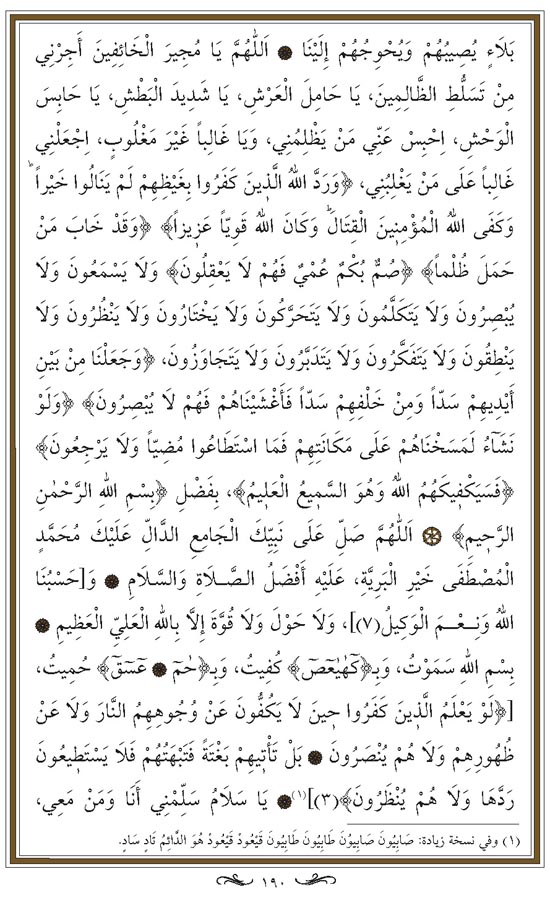 بَلَاءٍ يُصِيبُهُمْ وَيُحْوِجُهُمْ إِلَيْنَا ۞ اَللّٰهُمَّ يَا مُجِيرَ الْخَائِفِينَ أَجِرْنِي
مِنْ تَسَلُّطِ الظَّالِمِينَ، يَا حَامِلَ الْعَرْشِ، يَا شَدِيدَ الْبَطْشِ، يَا حَابِسَ
الْوَحْشِ، اِحْبِسْ عَنِّي مَنْ يَظْلِمُنِي، وَيَا غَالِباً غَيْرَ مَغْلُوبٍ، اِجْعَلْنِي
غَالِباً عَلَى مَنْ يَغْلِبُنِي، ﴿وَرَدَّ اللهُ الَّذِينَ كَفَرُوا بِغَيْظِهِمْ لَمْ يَنَالُوا خَيْراًۜ
وَكَفَى اللهُ الْمُؤْمِنِينَ الْقِتَالَۜ وَكَانَ اللهُ قَوِيّاً عَزِيزاً﴾ ﴿وَقَدْ خَابَ مَنْ
حَمَلَ ظُلْماً﴾ ﴿صُمٌّ بُكْمٌ عُمْيٌ فَهُمْ لَا يَعْقِلُونَ﴾ وَلَا يَسْمَعُونَ وَلَا
يُبْصِرُونَ وَلَا يَتَكَلَّمُونَ وَلَا يَتَحَرَّكُونَ وَلَا يَخْتَارُونَ وَلَا يَنْظُرُونَ وَلَا
يَنْطِقُونَ وَلَا يَتَفَكَّرُونَ وَلَا يَتَدَبَّرُونَ وَلَا يَتَجَاوَزُونَ، ﴿وَجَعَلْنَا مِنْ بَيْنِ
أَيْدِيهِمْ سَدّاً وَمِنْ خَلْفِهِمْ سَدّاً فَأَغْشَيْنَاهُمْ فَهُمْ لَا يُبْصِرُونَ﴾ ﴿وَلَوْ
نَشَآءُ لَمَسَخْنَاهُمْ عَلَى مَكَانَتِهِمْ فَمَا اسْتَطَاعُوا مُضِيّاً وَلَا يَرْجِعُونَ﴾
﴿فَسَيَكْفِيكَهُمُ اللهُ وَهُوَ السَّمِيعُ الْعَلِيمُ﴾، بِفَضْلِ ﴿بِسْمِ اللهِ الرَّحْمٰنِ
الرَّحِيمِ﴾ ۞ اَللّٰهُمَّ صَلِّ عَلَى نَبِيِّكَ الْجَامِعِ الدَّالِّ عَلَيْكَ مُحَمَّدٍ
الْمُصْطَفَى خَيْرِ الْبَرِيَّةِ، عَلَيْهِ أَفْضَلُ الصَّلَاةِ وَالسَّلَامِ ۞ وَ[حَسْبُنَا
اللهُ وَنِعْمَ الْوَكِيلُ(٧)]، وَلَا حَوْلَ وَلَا قُوَّةَ إِلَّا بِاللهِ الْعَلِيِّ الْعَظِيمِ ۞
بِسْمِ اللهِ سَمَوْتُ، وَبِـ﴿كٓهٰيٰعٓصٓ﴾ كُفِيتُ، وَبِـ﴿حٰمٓ ۞ عٓسٓقٓ﴾ حُمِيتُ،
[﴿لَوْ يَعْلَمُ الَّذِينَ كَفَرُوا حِينَ لَا يَكُفُّونَ عَنْ وُجُوهِهِمُ النَّارَ وَلَا عَنْ
ظُهُورِهِمْ وَلَا هُمْ يُنْصَرُونَ ۞ بَلْ تَأْتِيهِمْ بَغْتَةً فَتَبْهَتُهُمْ فَلَا يَسْتَطِيعُونَ
رَدَّهَا وَلَا هُمْ يُنْظَرُونَ﴾(٣)](١) ۞ يَا سَلَامُ سَلِّمْنِي أَنَا وَمَنْ مَعِي،
(١) وفي نسخة زيادة: صَابِيُونَ صَابِيوُنَ طَابِيُونَ طَابِيُونَ قَيْعُودُ قَيْعُودُ هُوَ الدَّائِمُ تَادٍ سَادٍ.
١٩٠